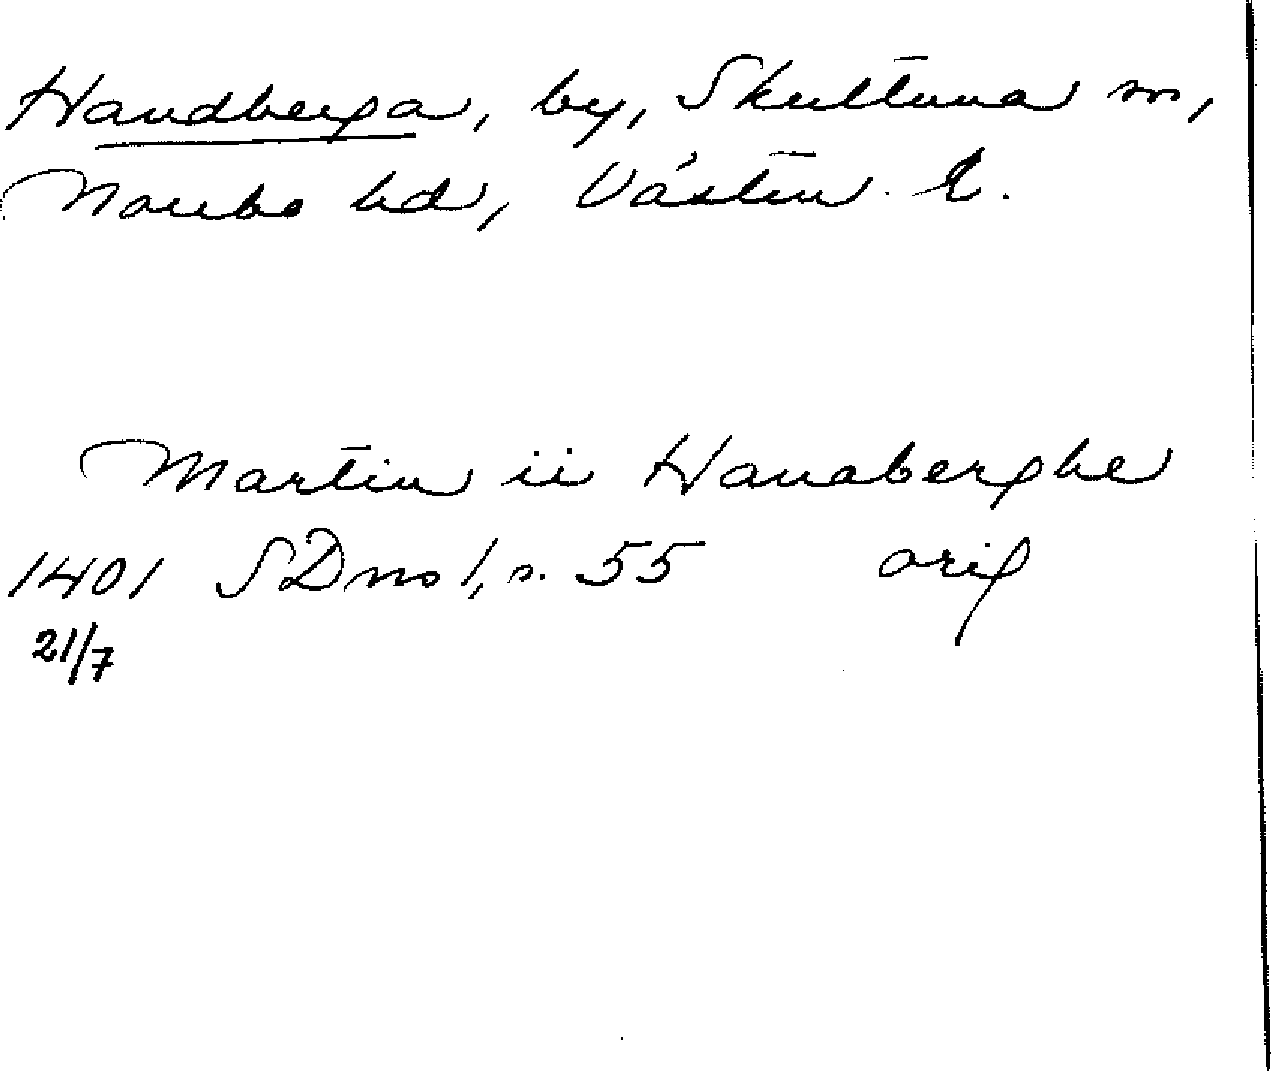 Handberga, by, Skultuna sn,
Norrbo hd, Västm. l.
Martin ii Hanaberghe
1401 SDns 1, s. 55 orig
21/7